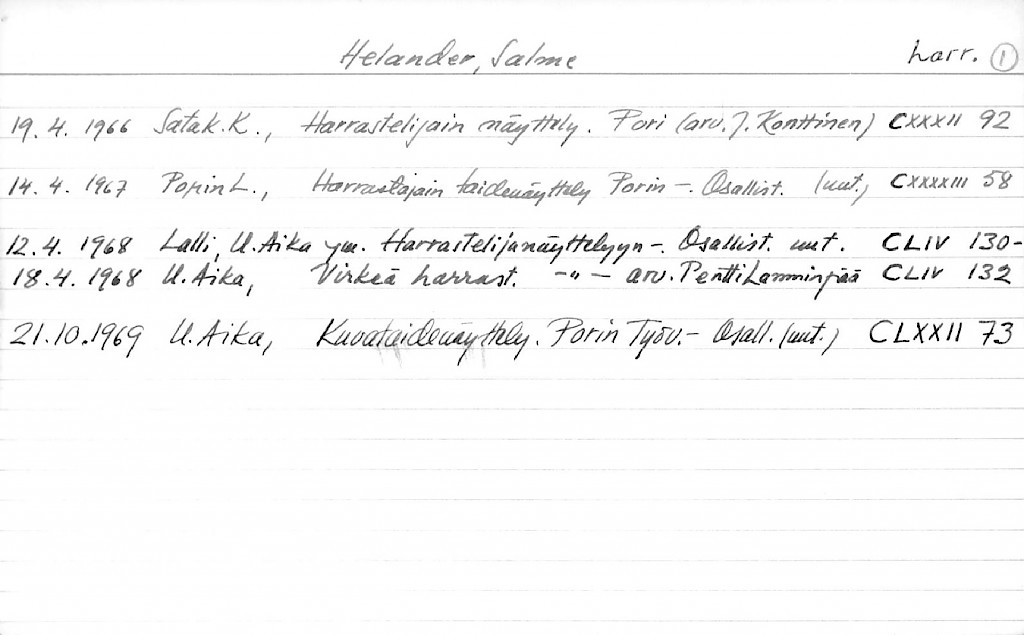 Helander, Salme harr. 1
19. 4. 1966 Satak. K., Harrastelijain näyttely. Pori (arv. J. Konttinen) CXXXII 92
14. 4. 1967 Porin L., Harrastajain taidenäyttely Porin -. Osallist. (uut.) CXXXXIII 58
12. 4. 1968 Lalli, U. Aika ym. Harrastelijanäyttelyyn -. Osallist. uut. CLIV 130-
18. 4. 1968 U. Aika, Virkeä harrast. -"- arv. Pentti Lamminpää CLIV 132
21.10.1969 U. Aika, Kuvataidenäyttely. Porin Työv. - Osall. (uut.) CLXXII 73